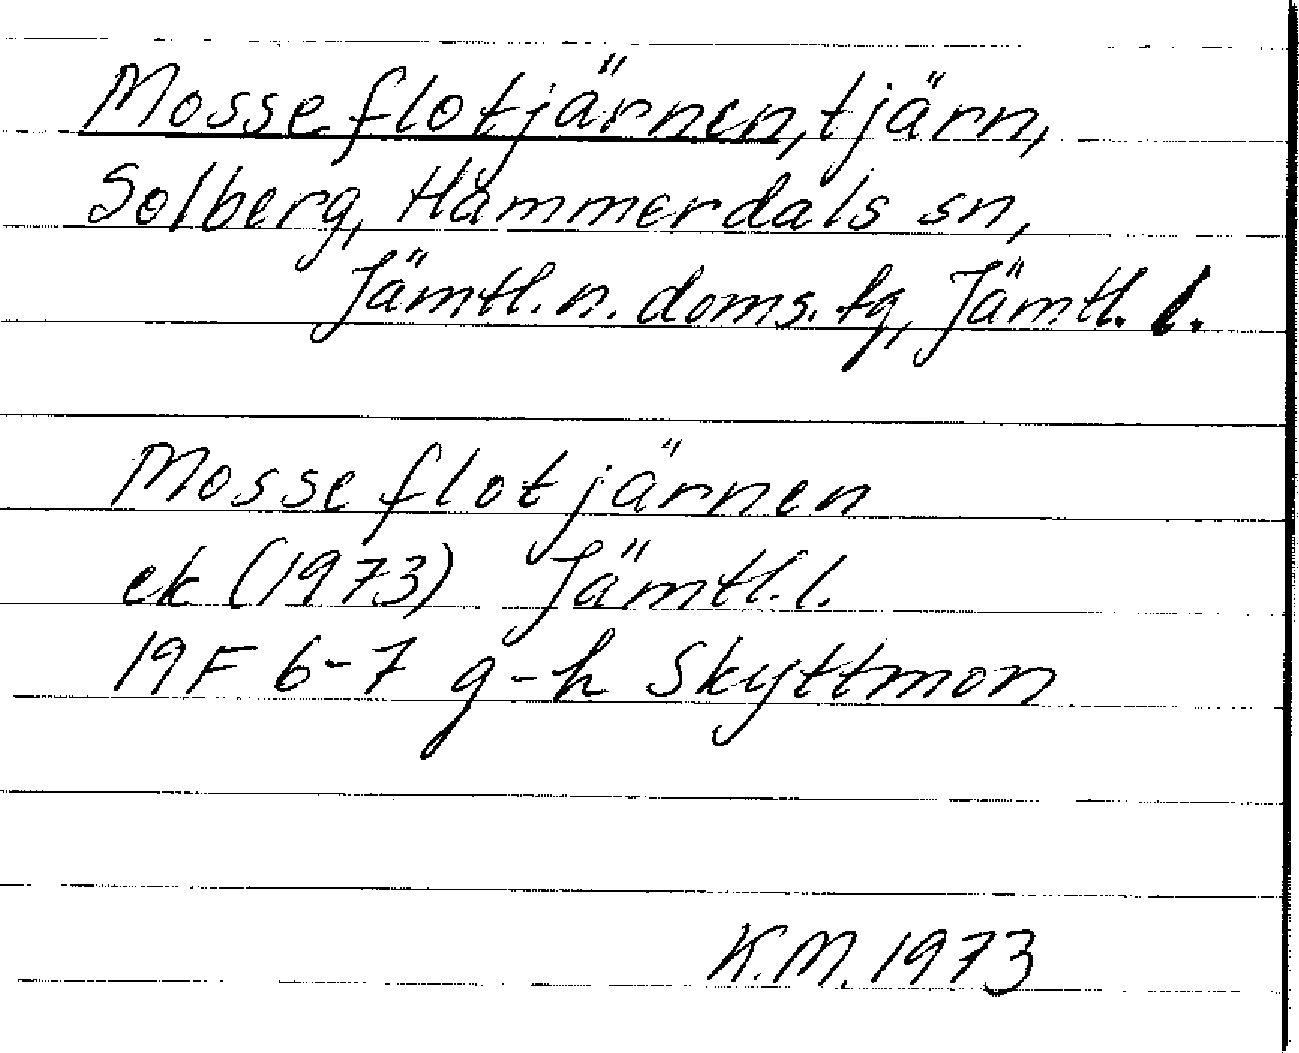 Mosseflotjärnen, tjärn,
Solberg, Hammerdals sn,
Jämtl. n. doms. tg, Jämtl. l.
Mosseflotjärnen
ek (1973) Jämtl. l.
19F 6-7 g-h Skyttmon
K.M. 1973